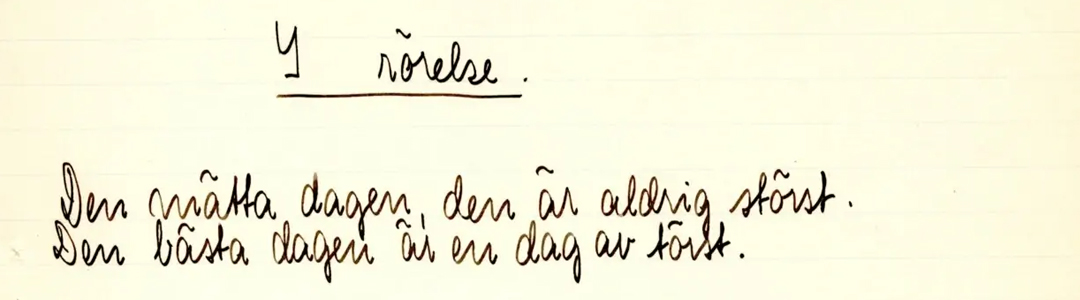 I rörelse.
Den mätta dagen, den är aldrig störst.
Den bästa dagen är en dag av törst.